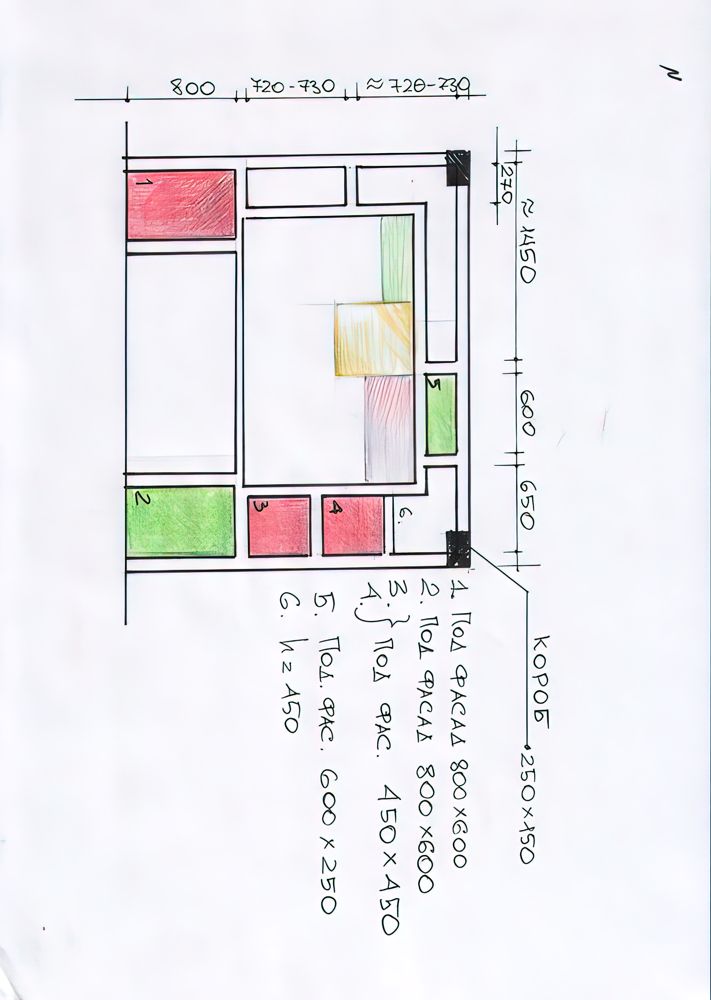 N
800
720-730
≈ 720-730
270
≈ 1450
600
650
1
2
3
4
5
6.
КОРОБ 250×150
1. ПОД ФАСАД 800×600
2. ПОД ФАСАД 800×600
3. } ПОД ФАС. 450×450
4.
5. ПОД. ФАС. 600×250
6. h=450